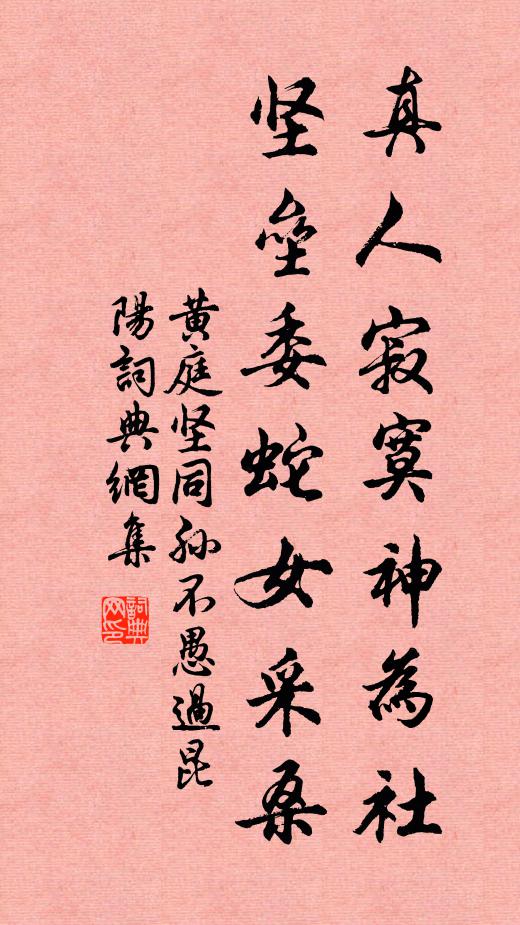 真人寂寞神為社
坚壘委蛇女采桑
黄庭坚同孙不愚過昆
陽詞典網集
詞典
网印